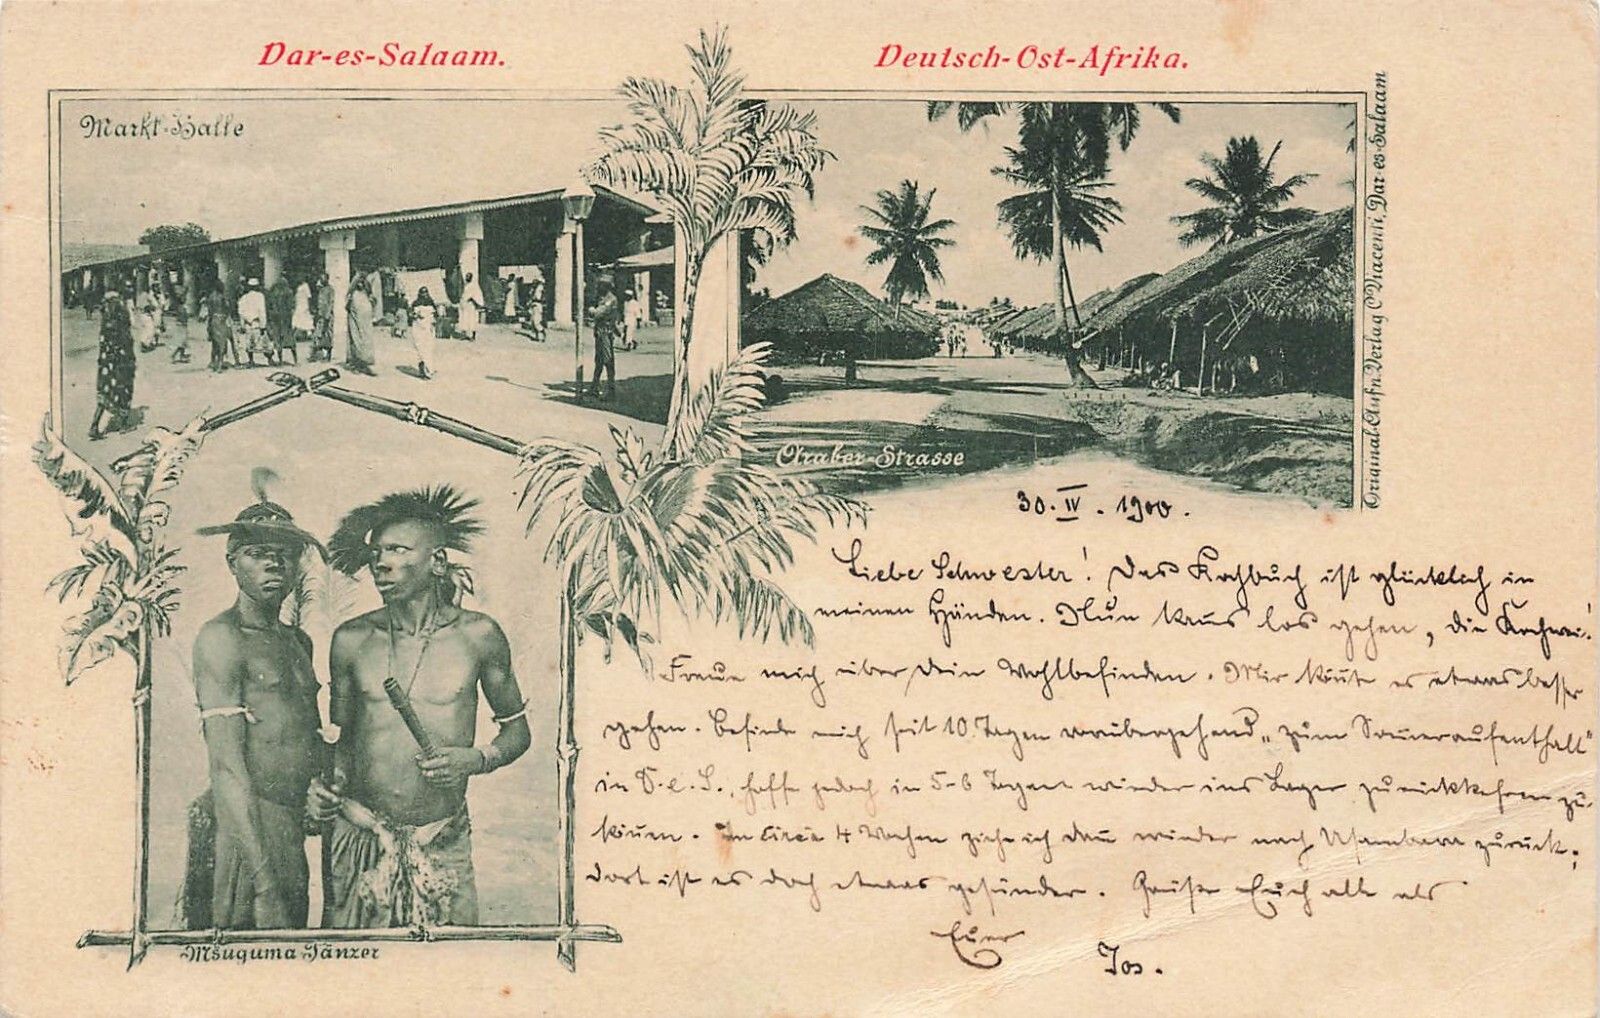 Dar-es-Salaam.
Deutsch-Ost-Afrika.
Markt-Halle
Araber-Strasse
Original-Aufn. Verlag C. Vincenti, Dar-es-Salaam
Msuguma Tänzer
30. IV. 1900.
Liebe Schwester! Das Kochbuch ist glücklich in
meinen Händen. Nun kann's los gehen, die Kocherei!
Freue mich über Dein Wohlbefinden. Mir könnte es etwas besser
gehen. Befinde mich seit 10 Tagen vorübergehend „zum Sommeraufenthalt"
in D.e.S., hoffe jedoch in 5-6 Tagen wieder ins Lager zurückkehren zu
können. In circa 4 Wochen ziehe ich dann wieder nach Usambara zurück;
dort ist es doch etwas gesünder. Grüße Euch alle als
Euer
Jos.